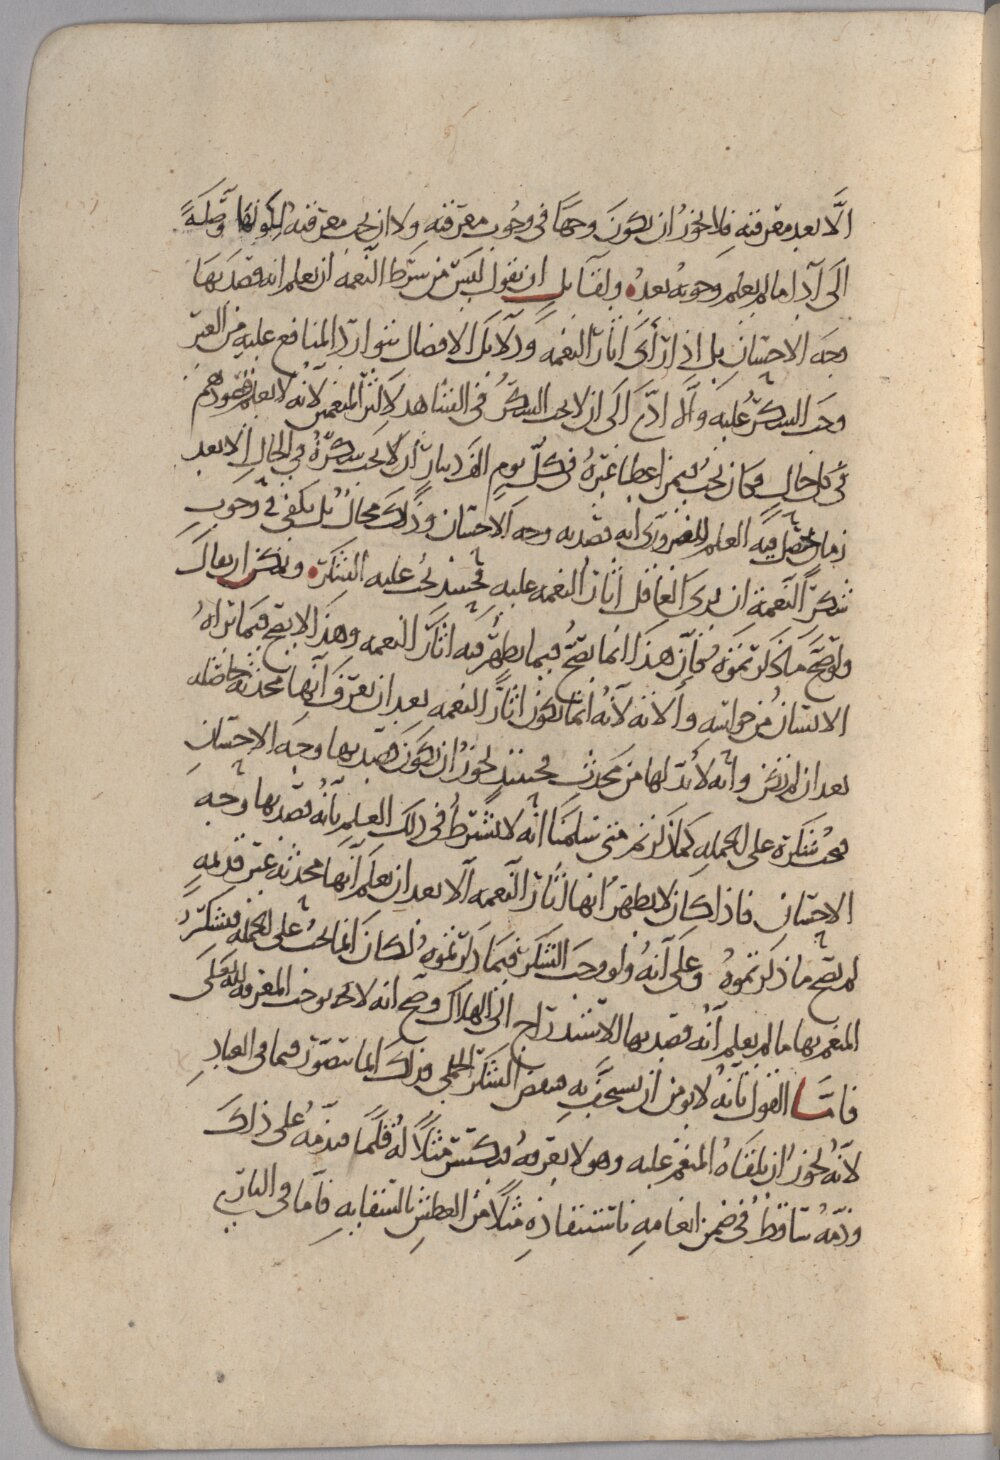 الّا بعد معرفته فلا يجوز ان يكون وجها فى وجوب معرفته ولا ان يجب معرفته لكونها وصلة
الى آدا ما لم يعلم وجوبه بعد ولقآيل ان يقول ليس من شرط النعمه ان يعلم انه قصد بها
وجه الاحسان بل اذا راى اثار النعمه ودلايل الافضال بتوارد المنافع عليه من الغير
وجب الشكر عليه والّا ادّى الى ان لا يجب الشكر فى الشاهد لاكثر المنعمين لانه لا يعلم قصودهم
فى كل حال وكان يجب فيمن اعطا غيره فى كل يوم الف دينار ان لا يجب شكره فى الحال الا بعد
زمان يحصل فيه العلم الضرورى انه قصد به وجه الاحسان وذلك محال بل يكفى فى وجوب
شكر النعمة ان يرى العاقل اثار النعمه عليه فحينئذ يجب عليه الشكر ويمكن ان يقال
ولو صح ما ذكرتموه فان هذا انما يصح فيما يظهر فيه اثار النعمه وهذا لا يصح فيما يراه
الانسان من حواسه وآلاته لانه انما يكون اثار النعمه بعد ان يعرف انها محدثه حاصله
بعد ان لم تكن وانه لا بد لها من محدث فحينئذ يجوز ان يكون قصد بها وجه الاحسان
فيجب شكره على الجمله كما ذكرتم متى سلمنا انه لا يشترط فى ذلك العلم بانه قصد بها وجه
الاحسان فاذا كان لا يظهر انها اثار النعمه الا بعد ان يعلم انها محدثه غير قديمه
لم يصح ما ذكرتموه وعلى انه ولو وجب الشكر فيما ذكرتموه لكان انما يجب على الجمله فيشكر
المنعم بها ما لم يعلم انه قصد بها الاستدراج الى الهلاك وصح انه لا يوجب المعرفه الله تعالى
فامّا القول بانه لا يومن ان يستخف به بعض الشكر الجملى فذلك انما يتصور فيما فى العباد
لانه يجوز ان يلقاه المنعم عليه وهو لا يعرفه فيكسر مثلا له قلما فيذمه على ذلك
وذمه ساقط فى ضمن انعامه باستنقاذه مثلا من العطش بالسقايه فاما فى البارى